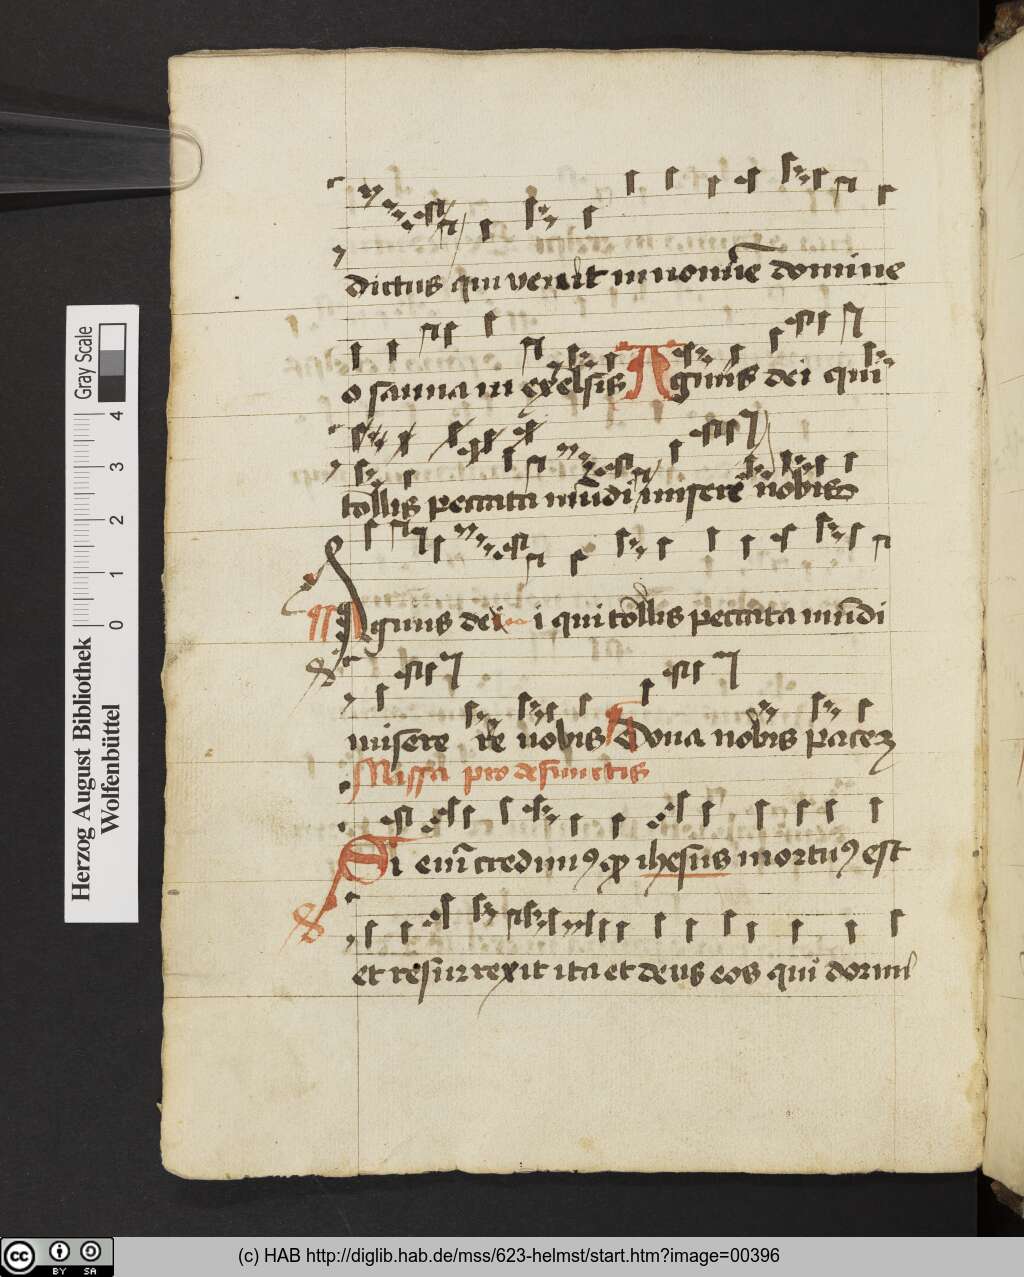 dictus qui venit in nomīe domine
osanna in exelsis Agnus dei qui
tollis peccata mūdi misere nobis
Agnus dei i qui tollis peccata mūdi
misere re nobis Dona nobis pacem
Missa pro defunctis
Si enī credimꝰ qꝫ ihesus mortuꝰ est
et resurrexit ita et deus eos qui dormi
Gray Scale
4
3
2
1
0
Herzog August Bibliothek
Wolfenbüttel
cc BY SA
(c) HAB http://diglib.hab.de/mss/623-helmst/start.htm?image=00396